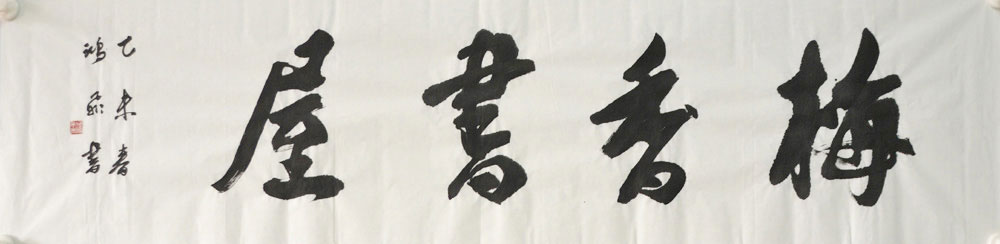 梅香書屋
乙未春
鴻飛書